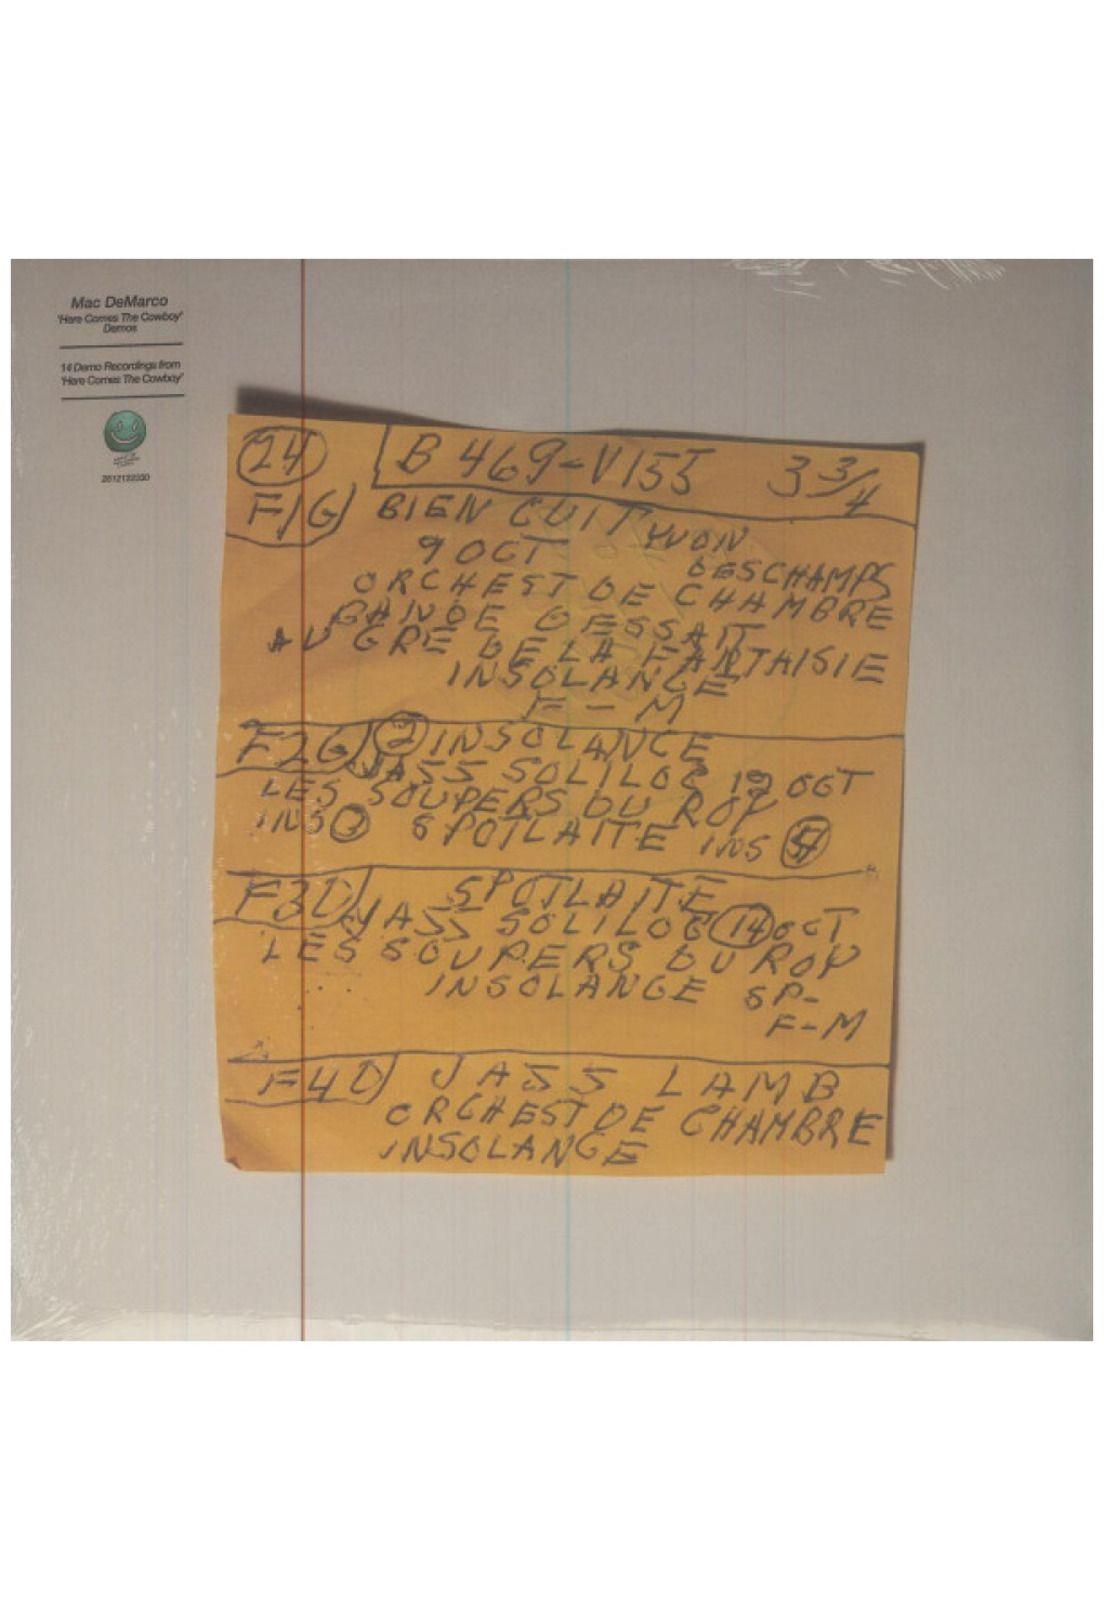 Mac DeMarco
'Here Comes The Cowboy'
Demos
14 Demo Recordings from
'Here Comes The Cowboy'
2612122330
24 B 469-V155 3 3/4
F1G BIEN CUIT YVON
9 OCT DESCHAMPS
ORCHEST DE CHAMBRE
BANDE DESSAIT
AU GRE DE LA FANTAISIE
INSOLANGE
F-M
F2G 2 INSOLANGE
JASS SOLILOC 19 OCT
LES SOUPERS DU ROY
INS 3 SPOTLAITE INS
F3D SPOTLAITE
JASS SOLILOC 14 OCT
LES SOUPERS DU ROY
INSOLANGE SP-
F-M
F4D JASS LAMB
ORCHEST DE CHAMBRE
INSOLANGE